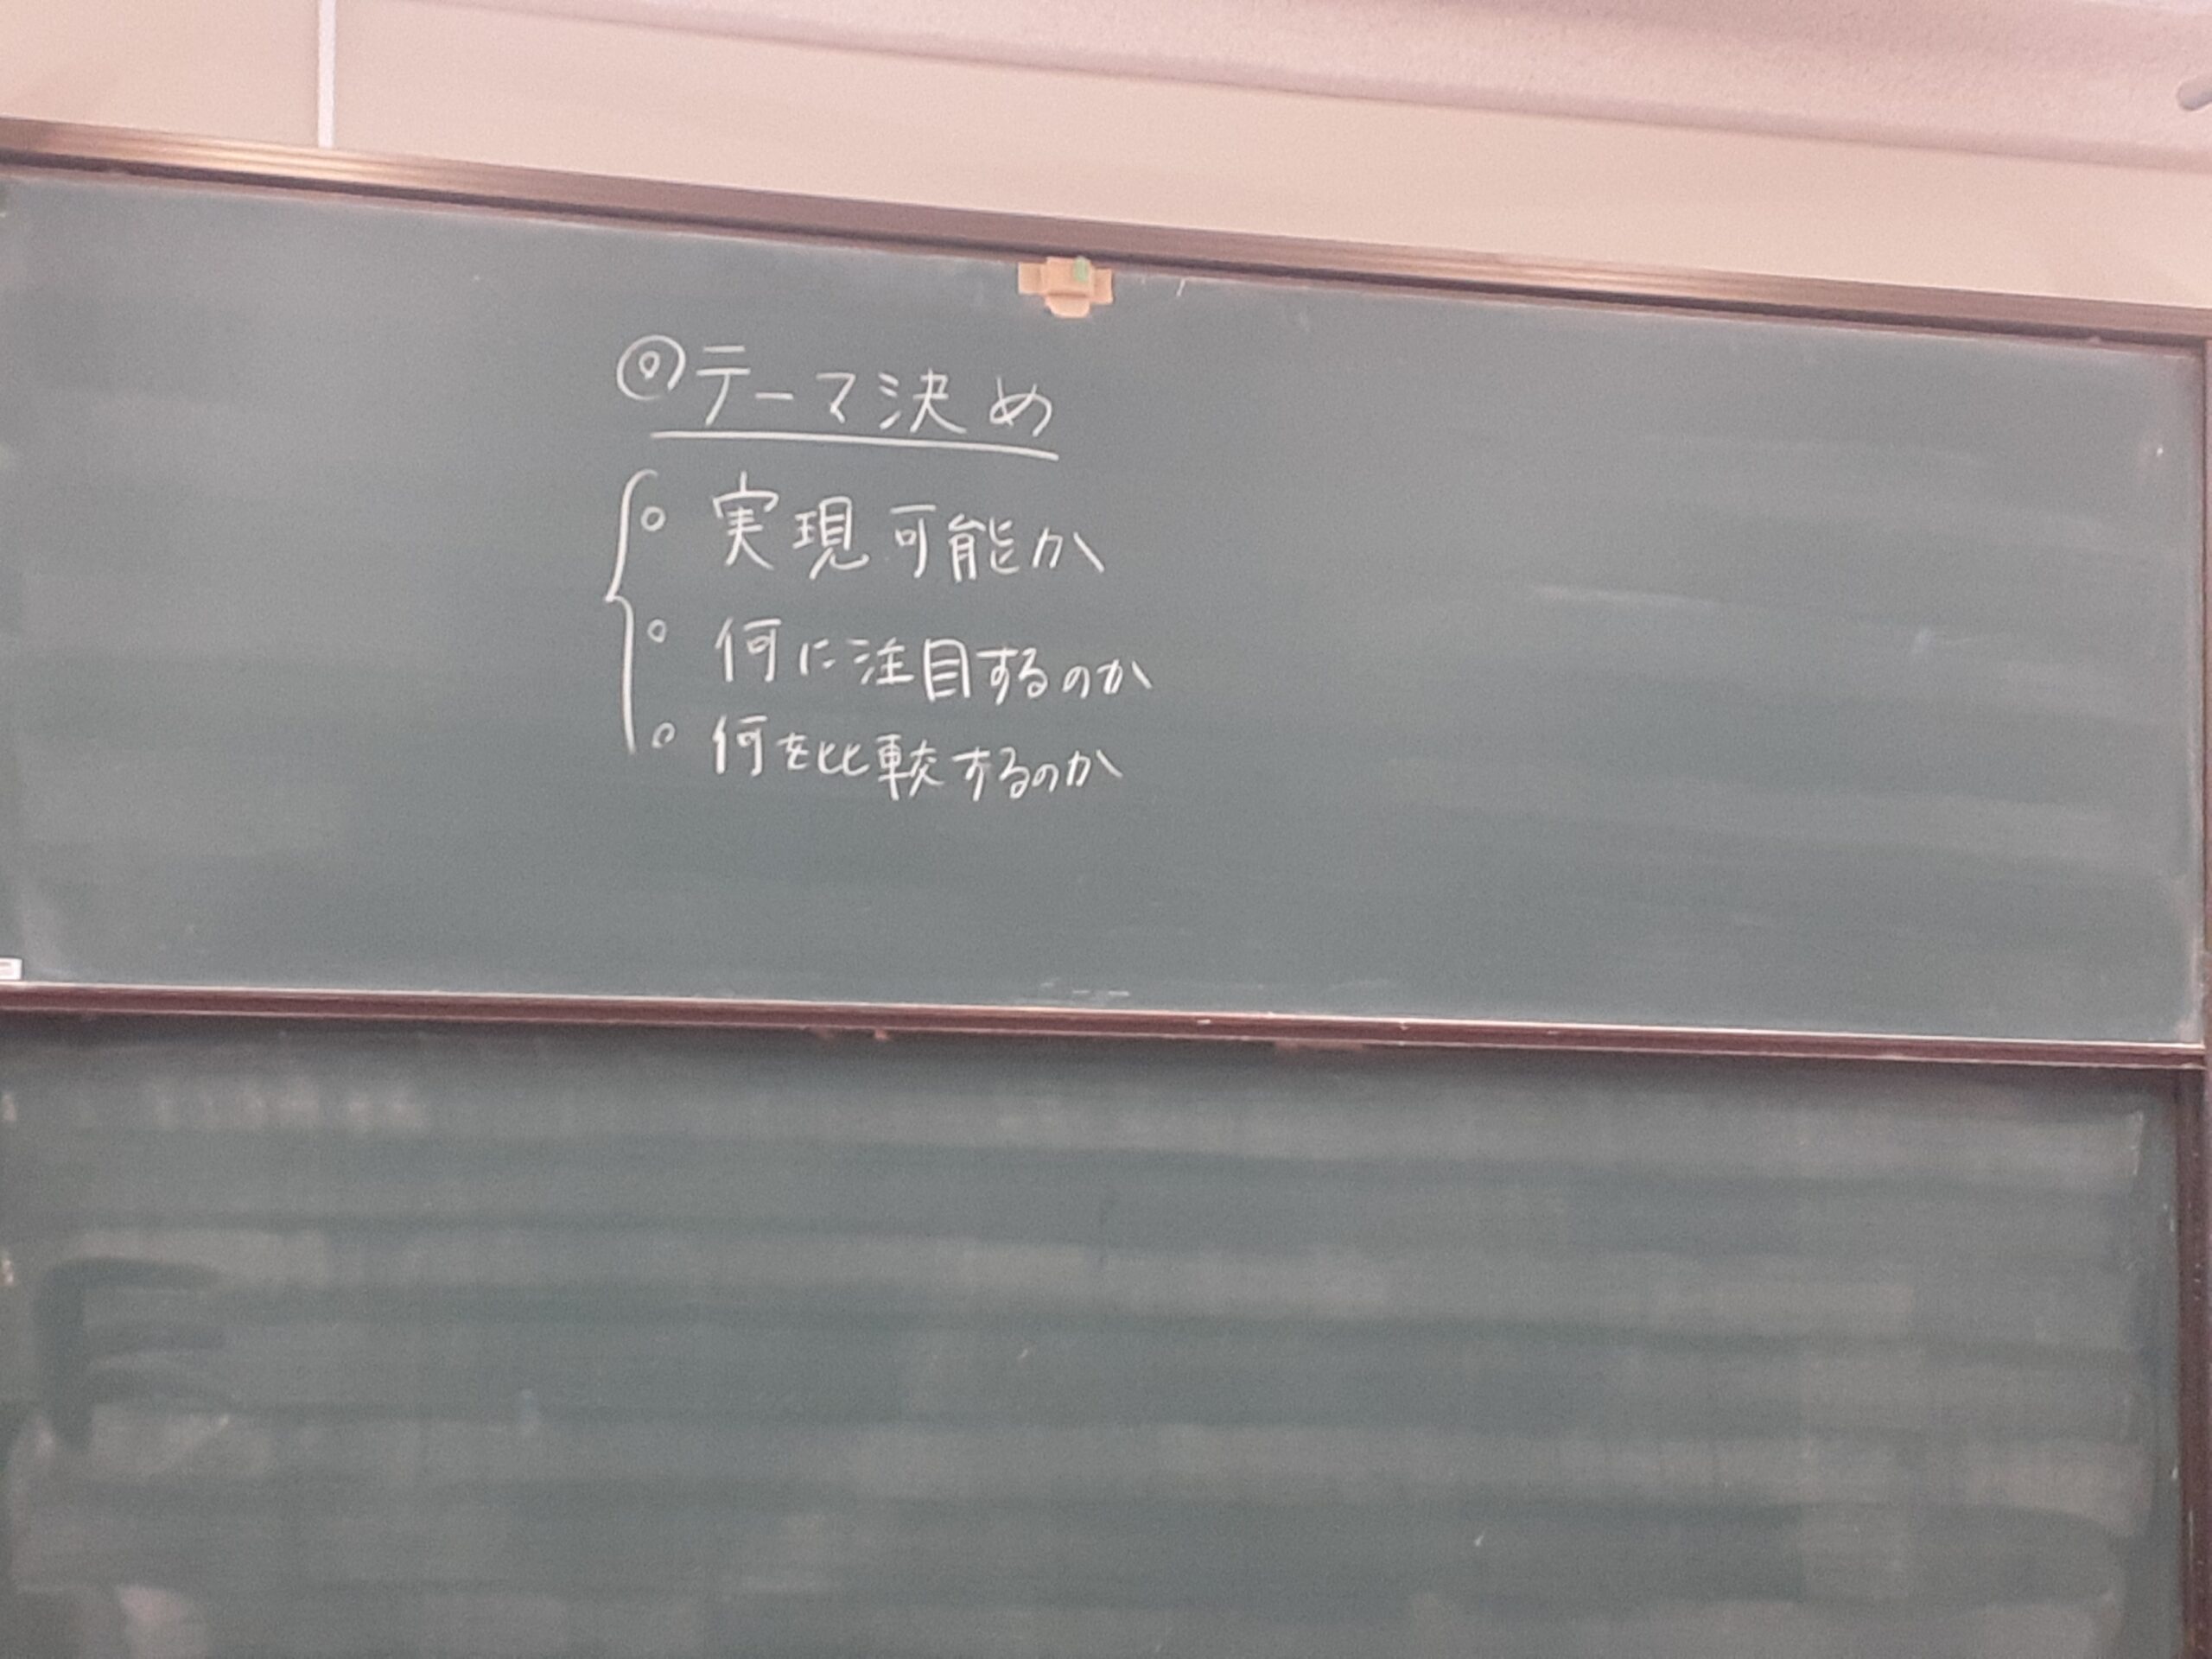 ◎テーマ決め
○ 実現可能か
○ 何に注目するのか
○ 何を比較するのか